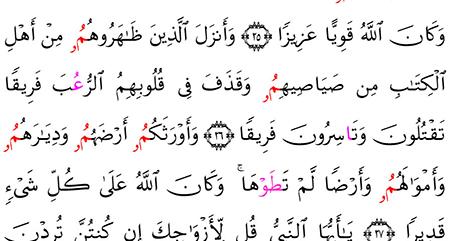 وَكَانَ ٱللَّهُ قَوِيًّا عَزِيزًا ۝٢٥ وَأَنزَلَ ٱلَّذِينَ ظَٰهَرُوهُمُۥ مِنْ أَهْلِ
ٱلْكِتَٰبِ مِن صَيَاصِيهِمُۥ وَقَذَفَ فِى قُلُوبِهِمُ ٱلرُّعُبَ فَرِيقًا
تَقْتُلُونَ وَتَاسِرُونَ فَرِيقًا ۝٢٦ وَأَوْرَثَكُمُۥ أَرْضَهُمُۥ وَدِيَٰرَهُمُۥ
وَأَمْوَٰلَهُمُۥ وَأَرْضًا لَّمْ تَطَوْهَا ۚ وَكَانَ ٱللَّهُ عَلَىٰ كُلِّ شَىْءٍ
قَدِيرًا ۝٢٧ يَٰٓأَيُّهَا ٱلنَّبِىُّ قُل لِّأَزْوَٰجِكَ إِن كُنتُنَّ تُرِدْنَ